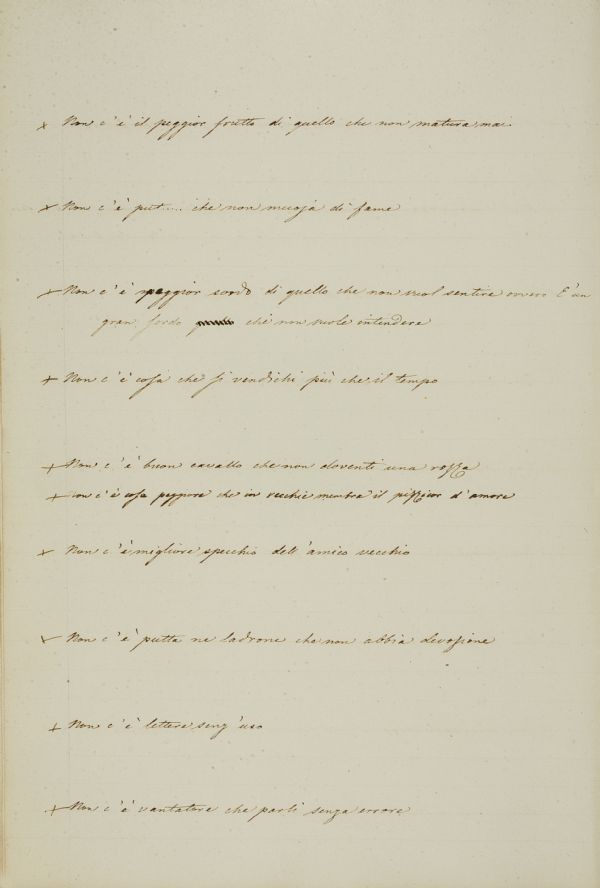 x Non c'è il peggior frutto di quello che non matura mai.
x Non c'è put..... che non muoja di fame
x Non c'è peggior sordo di quello che non vuol sentire ovvero E' un
gran sordo che non vuole intendere
x Non c'è cosa che si vendichi più che il tempo
x Non c'è buon cavallo che non doventi una rozza
x Non c'è cosa peggiore che in vecchie membra il pizzicor d'amore
x Non c'è migliore specchio dell'amico vecchio
x Non c'è putta ne ladrone che non abbia devozione
x Non c'è lettere senz'uso
x Non c'è vantatore che parli senza errore